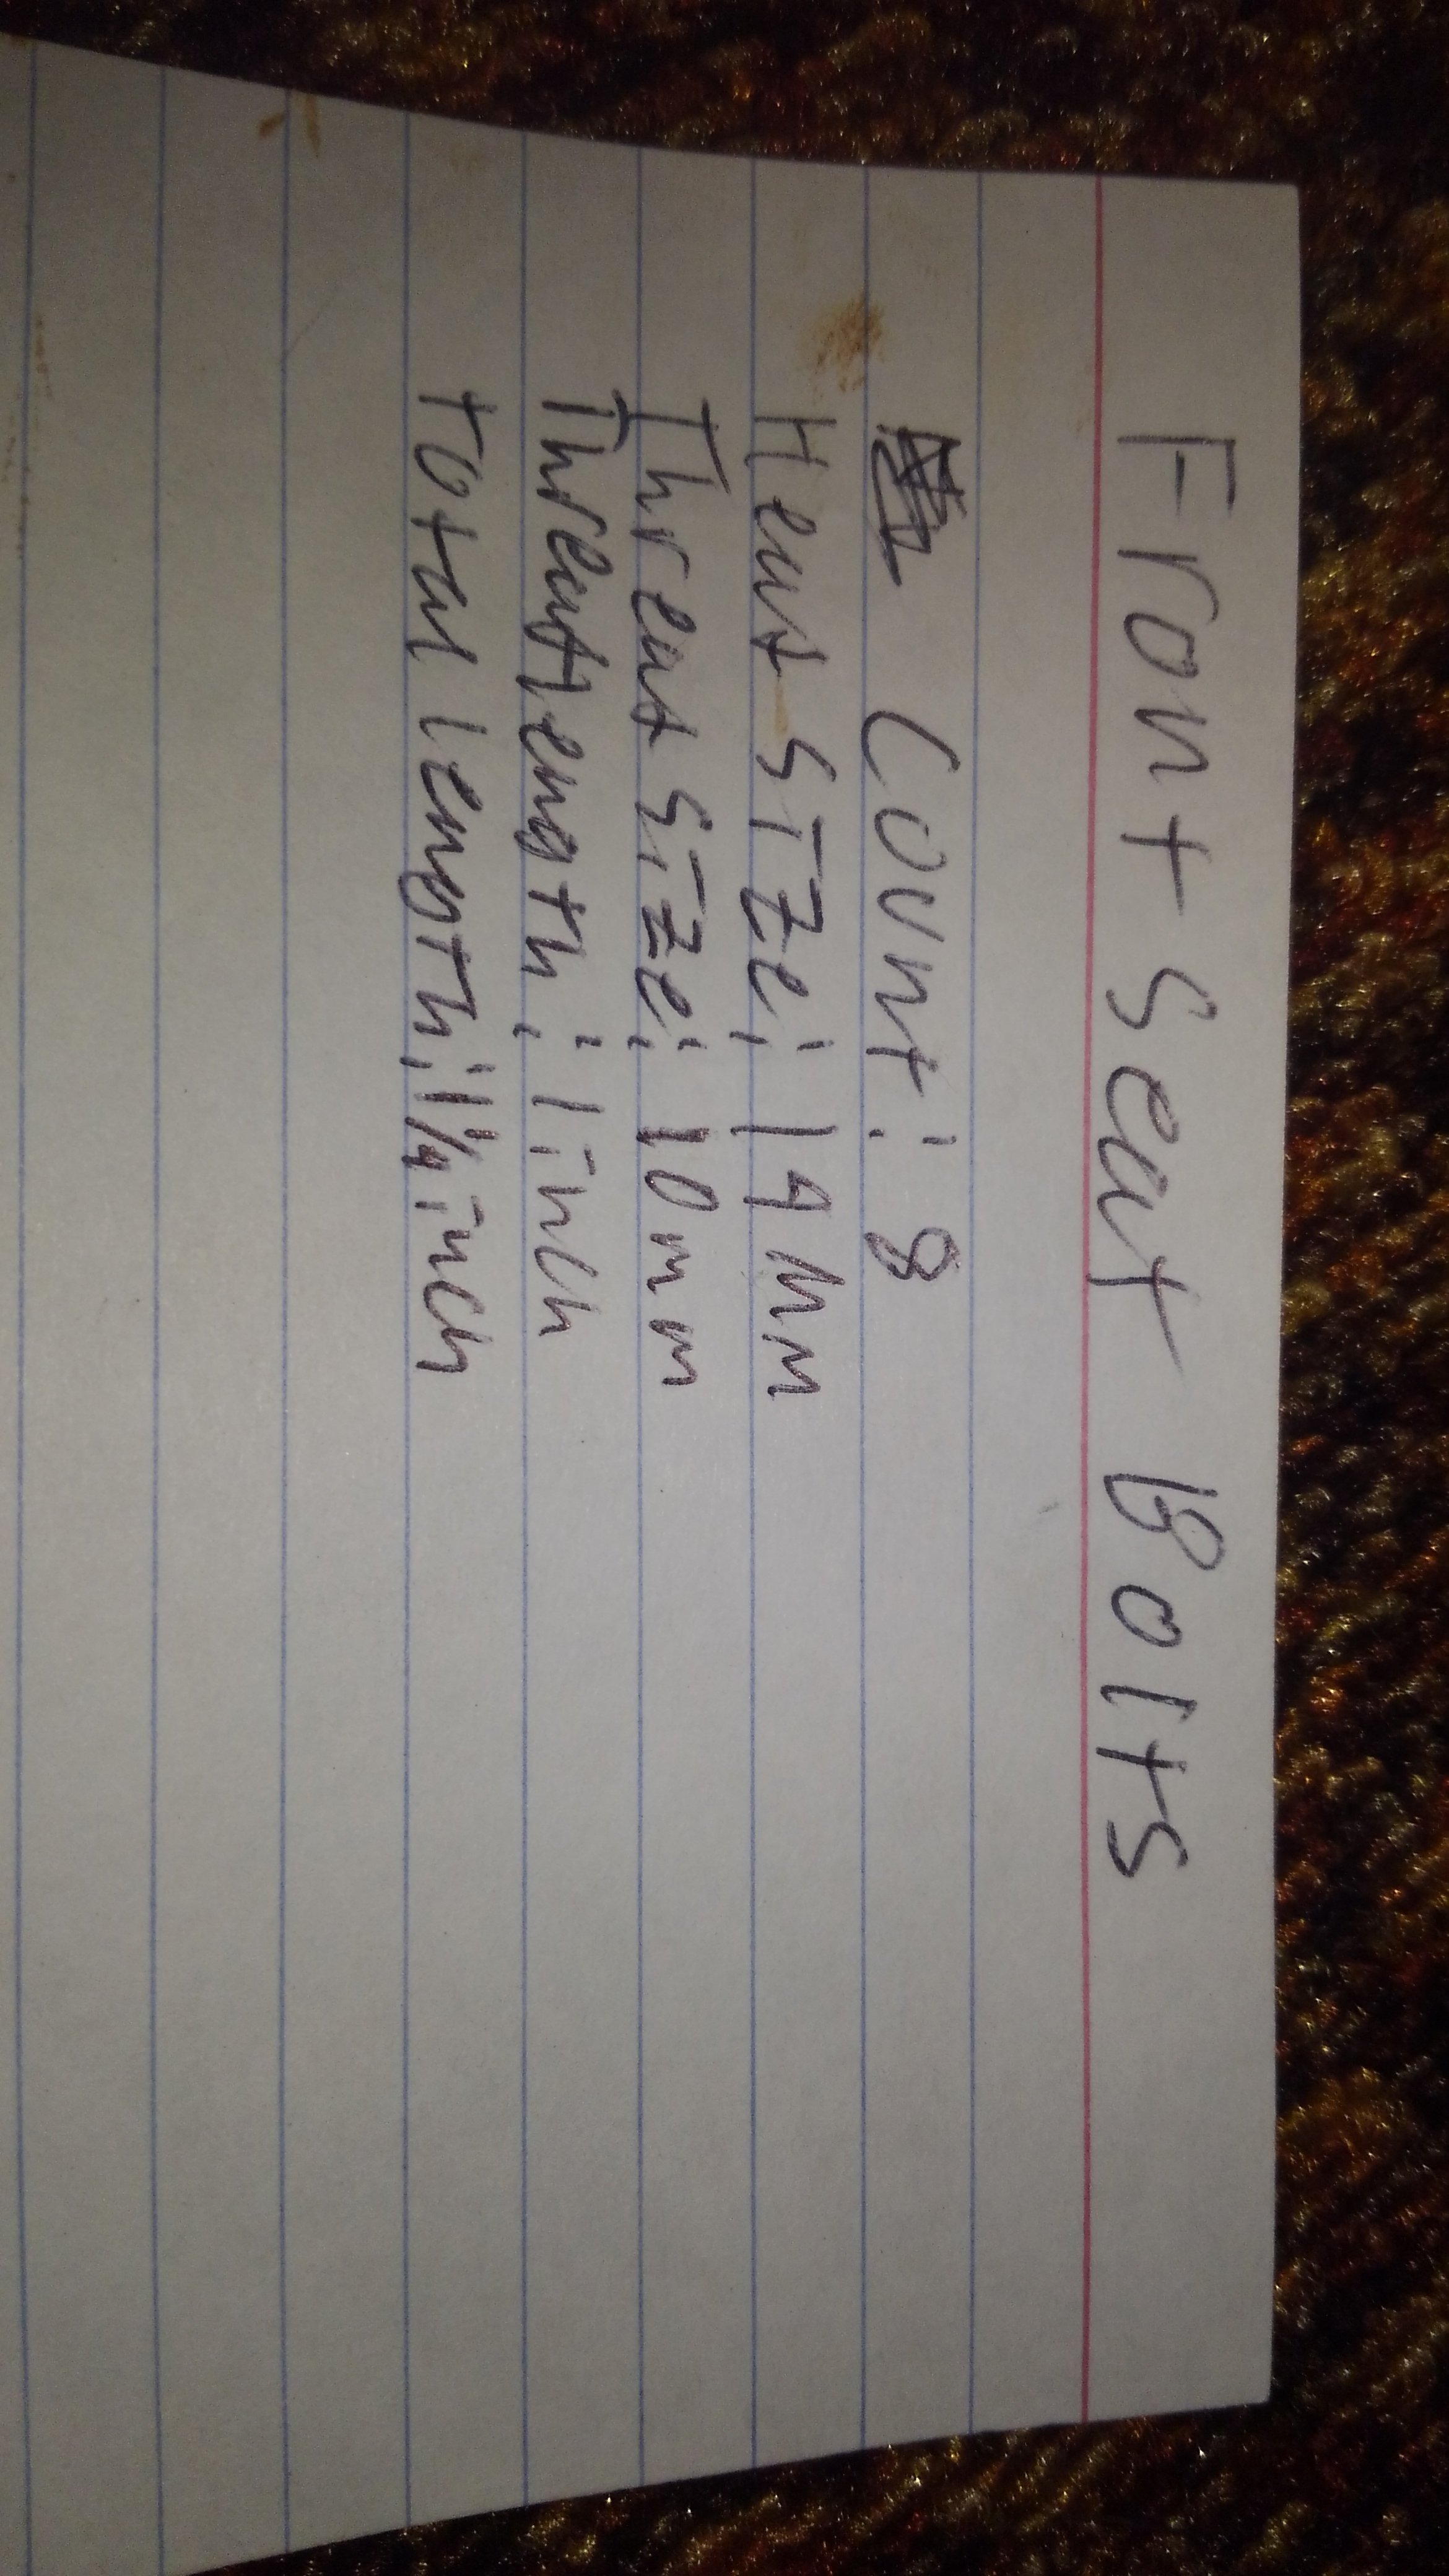 Front Seat Bolts
Count: 8
Heat Size: 14mm
Threat Size: 10mm
Threat length: 1 inch
total length: 1 1/4 inch